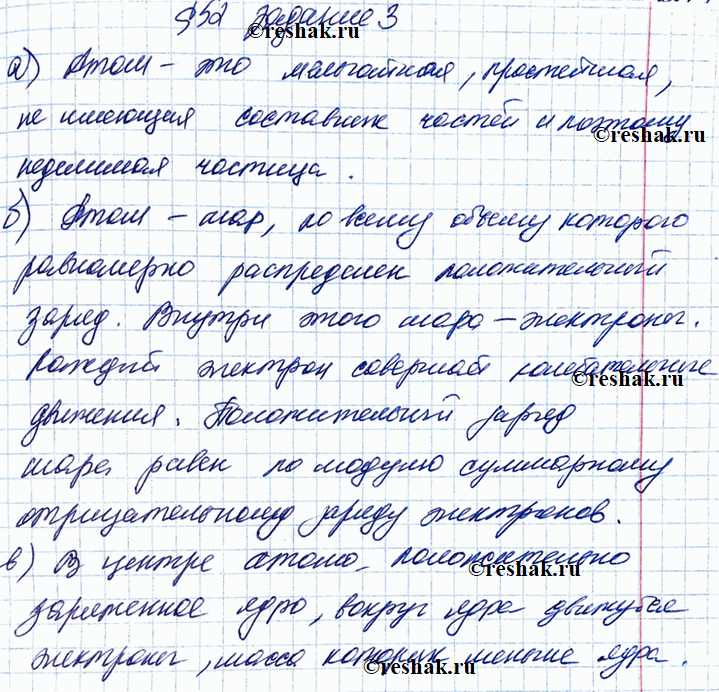 §52 задание 3
©reshak.ru
а) Атом - это мельчайшая, простейшая,
не имеющая составных частей и поэтому
©reshak.ru
неделимая частица.
б) Атом - шар, по всему объему которого
равномерно распределен положительный
заряд. Внутри этого шара - электроны.
Каждый электрон совершает колебательные
©reshak.ru
движения. Положительный заряд
шара равен по модулю суммарному
отрицательному заряду электронов.
в) В центре атома положительно
©reshak.ru
заряженное ядро, вокруг ядра движутся
электроны, масса которых меньше ядра.
©reshak.ru